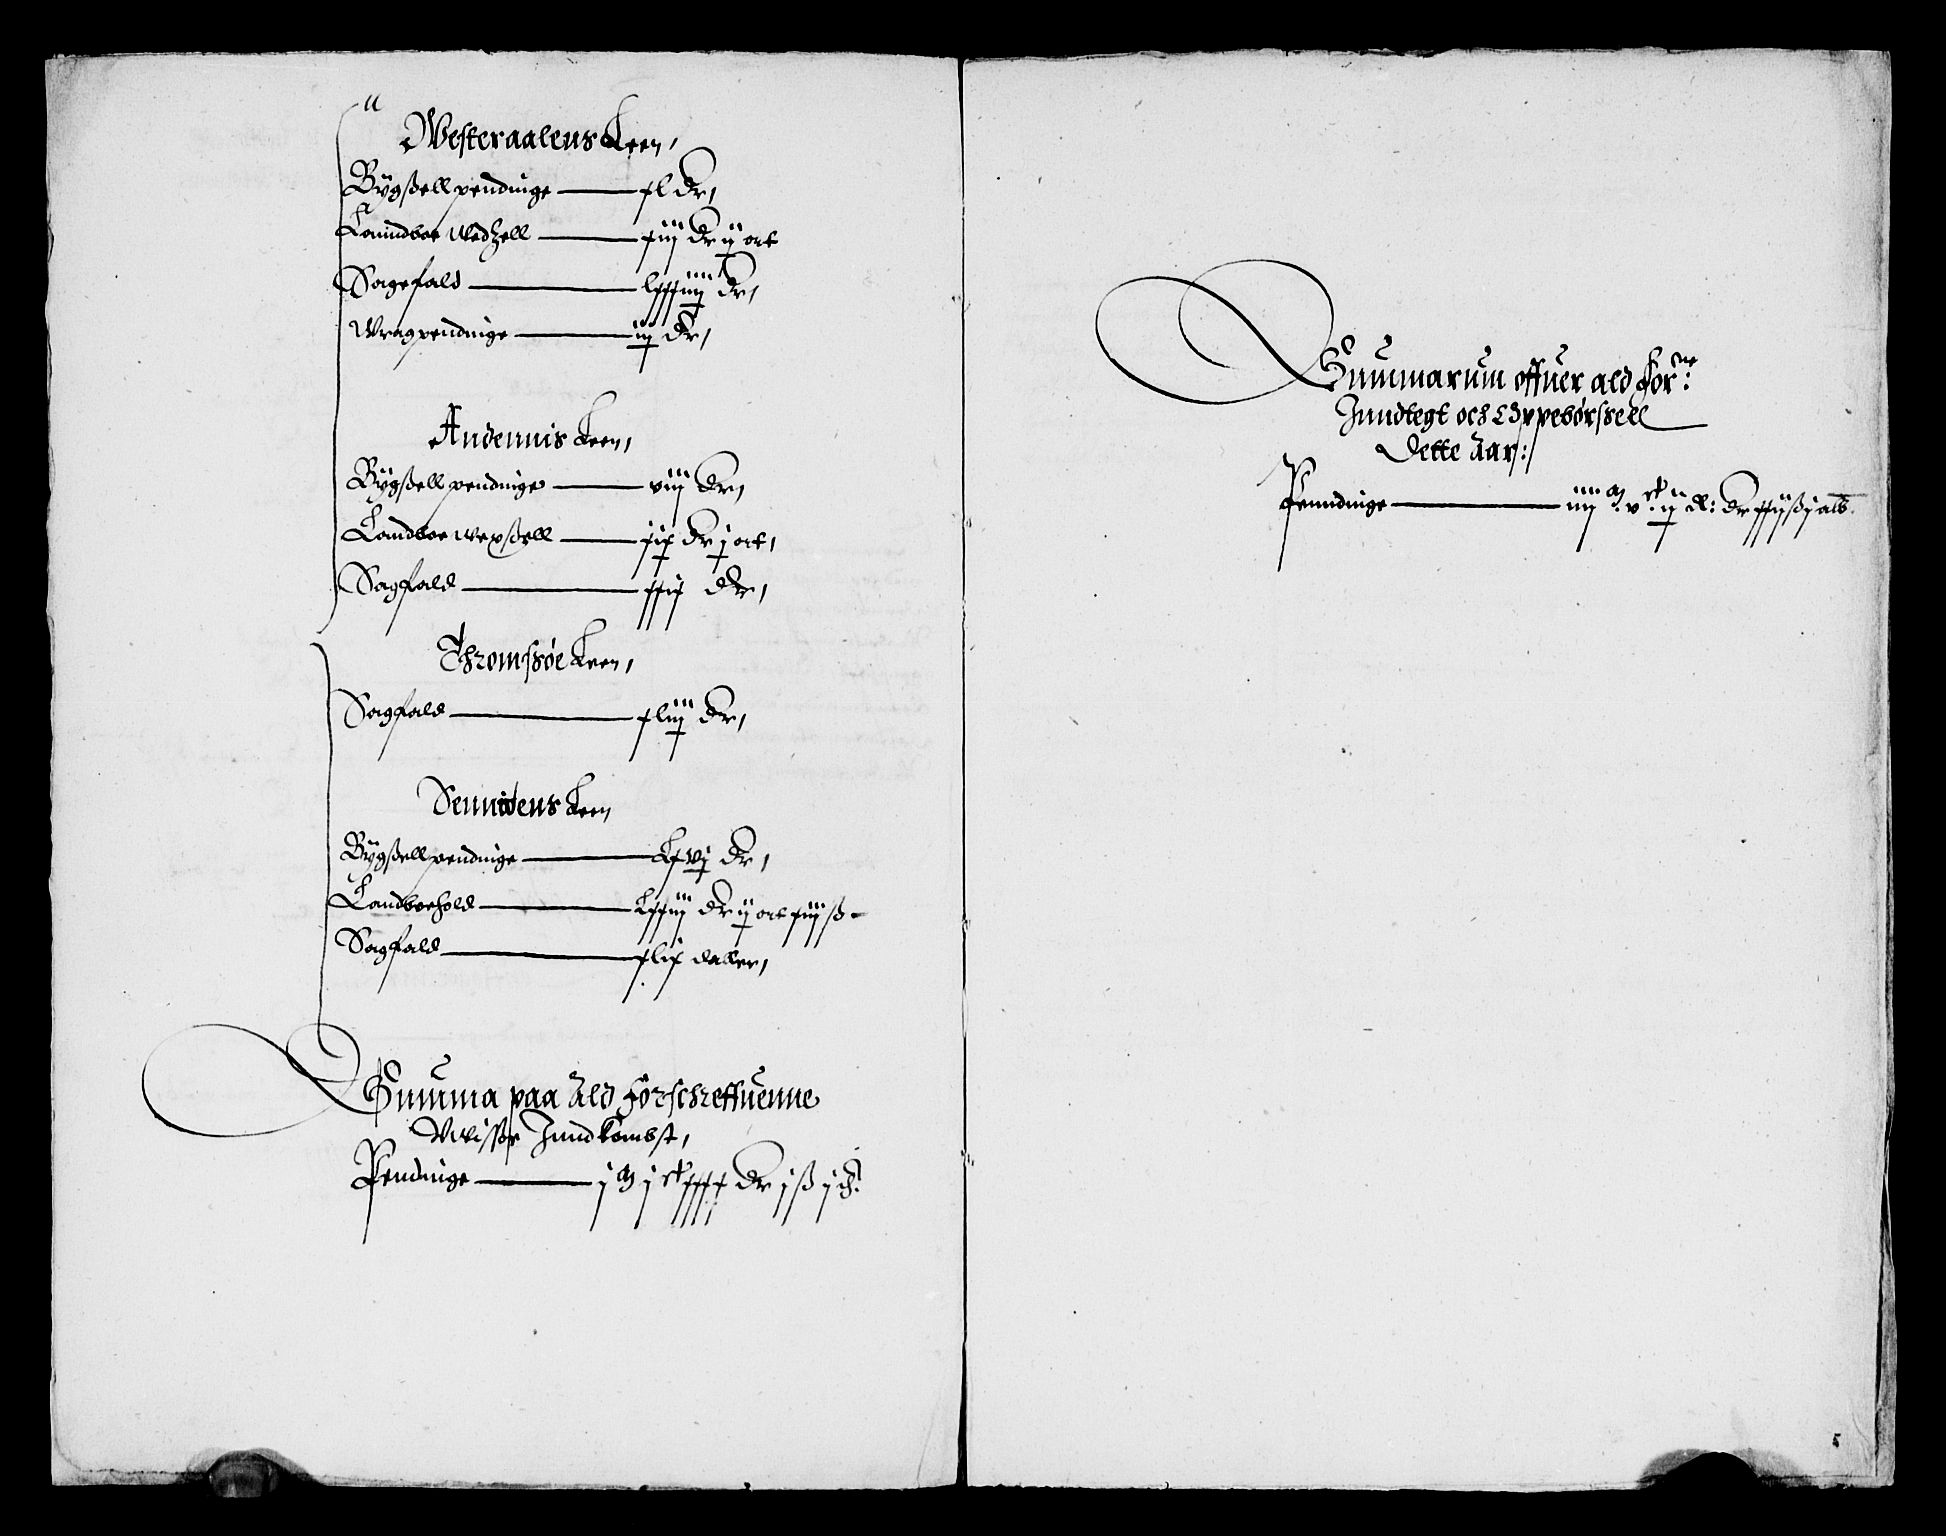 Westeraalens Leen,
Bÿgßell pendinge — xl dr,
Lanndboe Wedzell — xiij dr ij ort
Sagefald — lxxxiiij dr,
Wragpendinge — iij dr,
Andennis Leen,
Bÿgßell pendinge — viij dr,
Landboe wexßell — xix dr j ort,
Sagfald — xxix dr,
Thromsøe Leen,
Sagfald — xliij dr,
Senniens Leen,
Bÿgßell pendinge — Lxvj dr,
Landboehold — Lxxiij dr ij ort xiij ß
Sagfald — xlix daller,
Summa paa Ald forschreffuenne
Wuisße Jndkombst,
Pendinge — j m j ck xxxx dr j ß j
Summarum offuer ald for:ne
Jnndtegt och Oppebørssell
Dette Aar:
Penndinge — iiij m: v ck: ij dr xxij ß j alb.
5